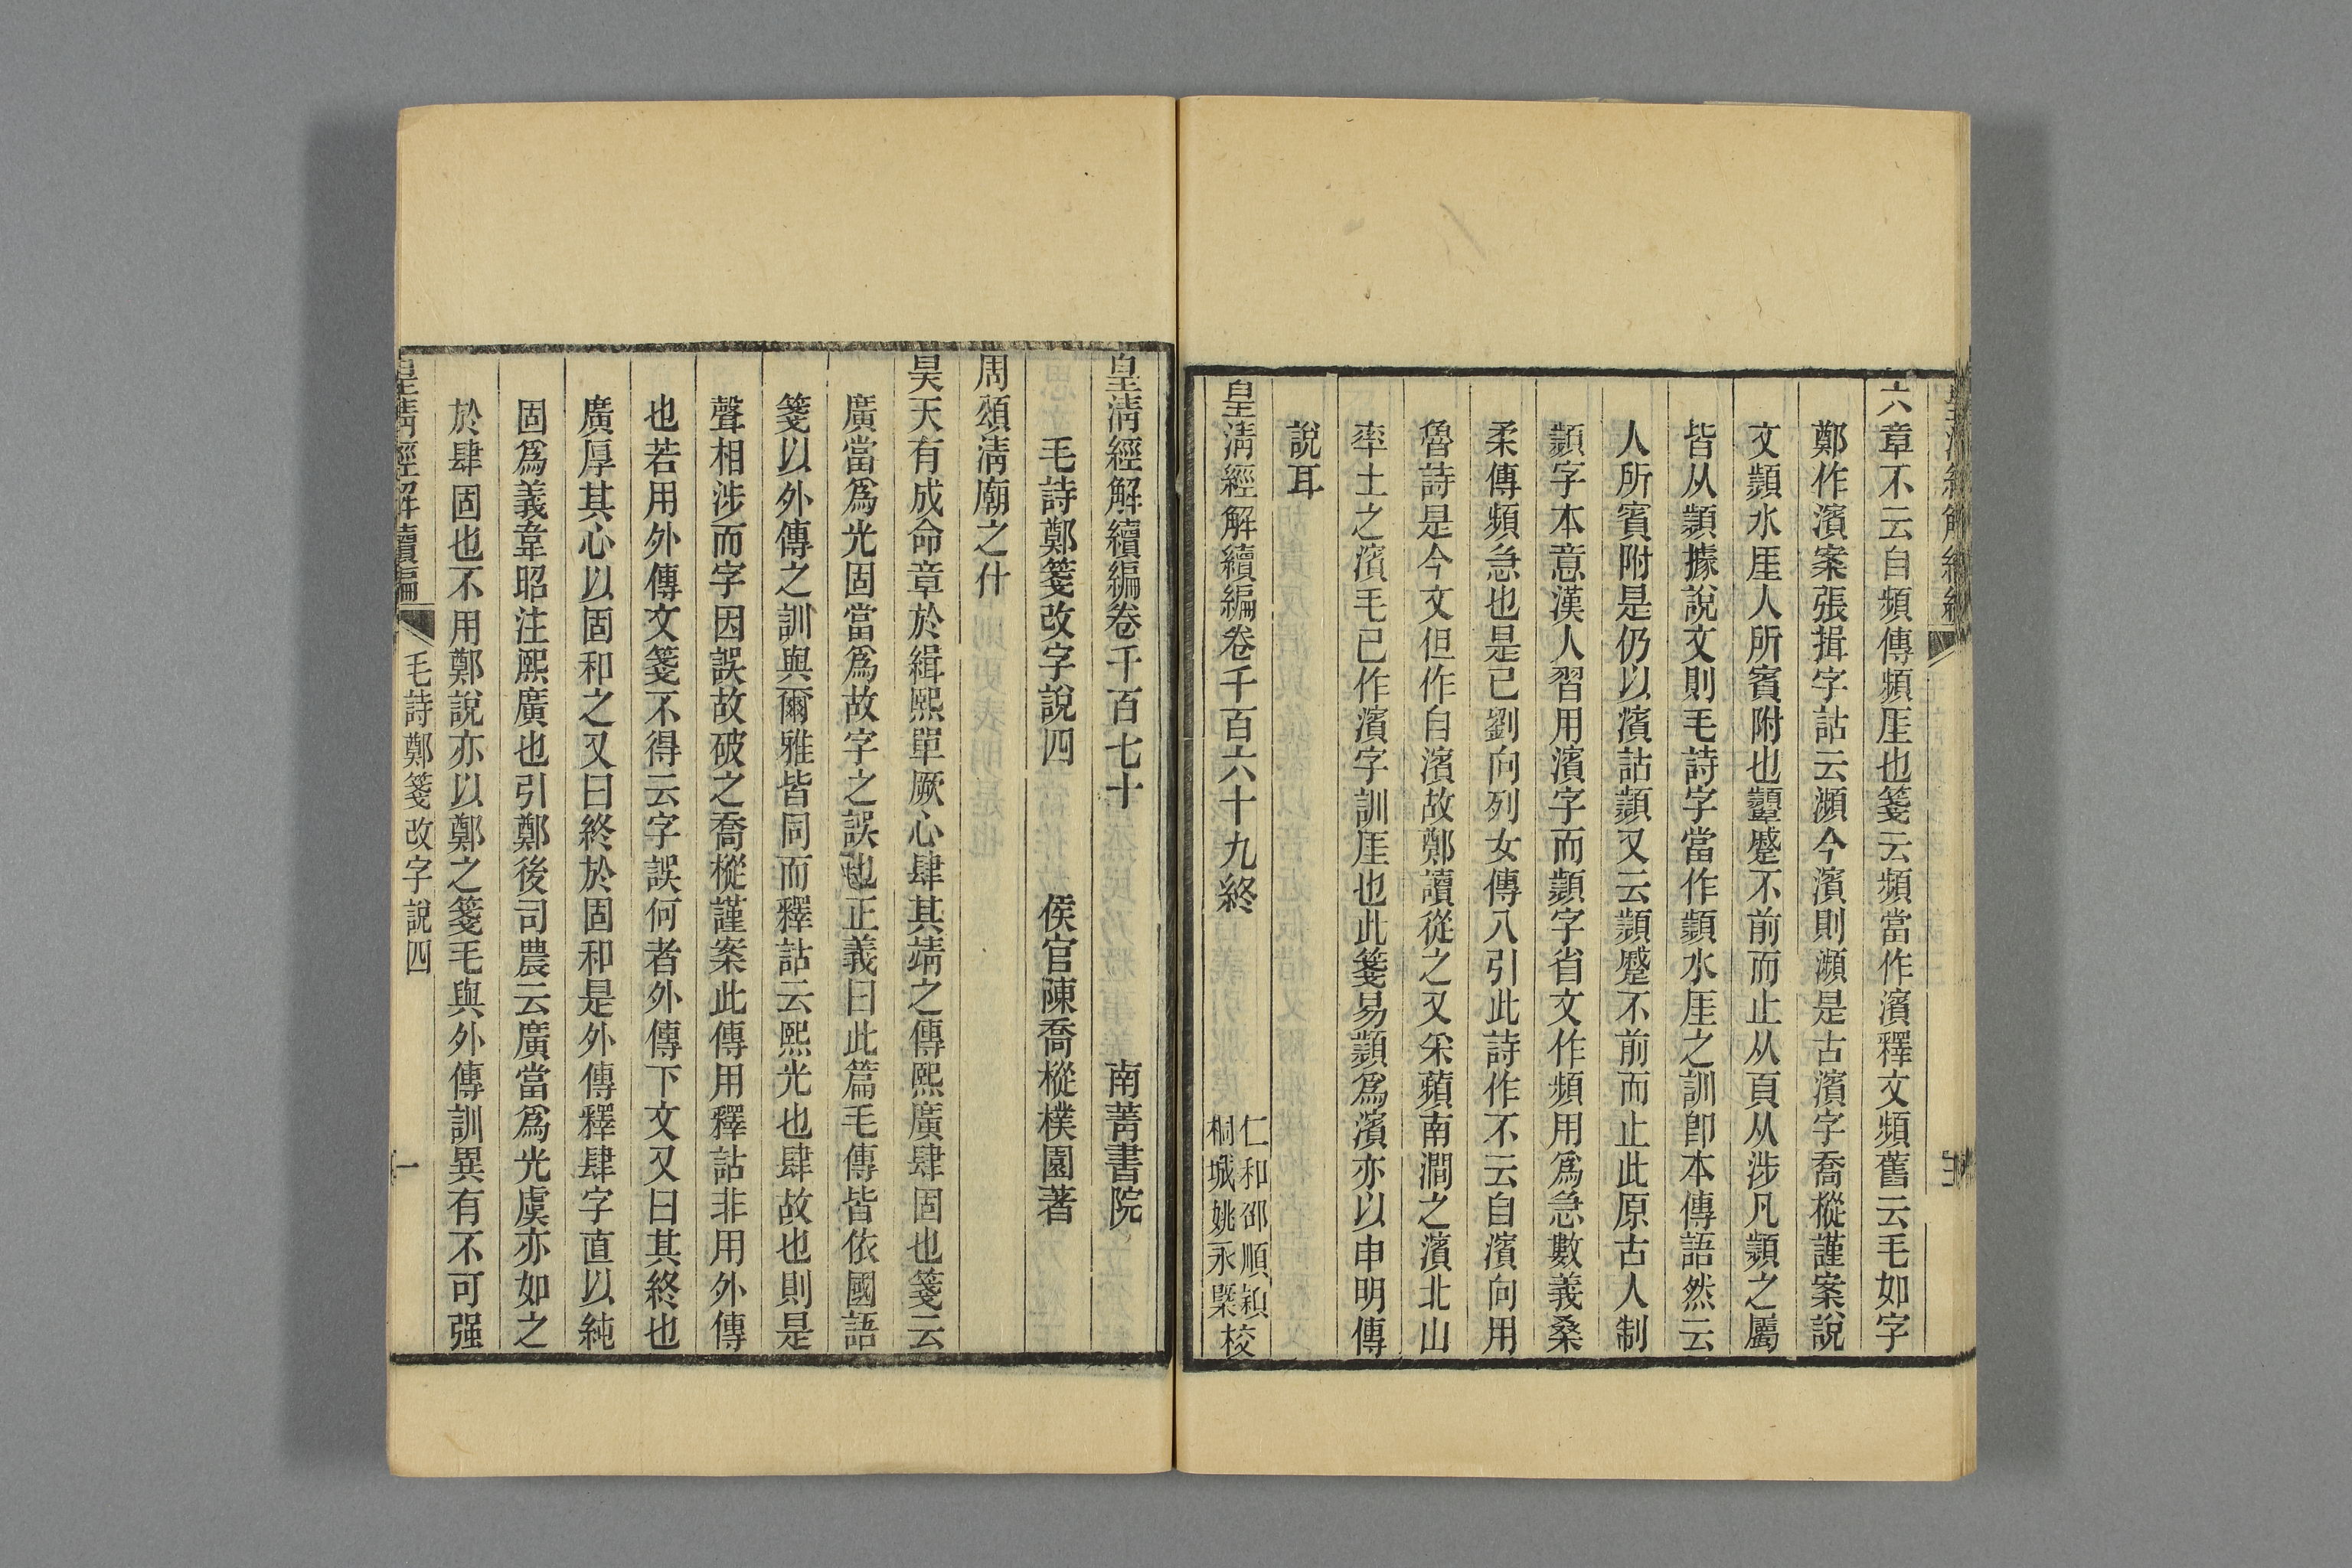 六章不云自頻傳頻厓也箋云頻當作濱釋文頻舊云毛如字
鄭作濱案張揖字詁云瀕今濱則瀕是古濱字喬樅謹案說
文顮水厓人所賓附也顰蹙不前而止从頁从涉凡顮之屬
皆从顮據說文則毛詩字當作顮水厓之訓卽本傳語然云
人所賓附是仍以濱詁顮又云顮蹙不前而止此原古人制
顮字本意漢人習用濱字而顮字省文作頻用爲急數義桑
柔傳頻急也是已劉向列女傳八引此詩作不云自濱向用
魯詩是今文但作自濱故鄭讀從之又采蘋南澗之濱北山
率土之濱毛已作濱字訓厓也此箋易顮爲濱亦以申明傳
說耳
皇淸經解續編卷千百六十九終
仁和邵順穎
桐城姚永㮣校
皇淸經解續編卷千百七十
南菁書院
毛詩鄭箋改字說四
侯官陳喬樅樸園著
周頌淸廟之什
昊天有成命章於緝熙單厥心肆其靖之傳熙廣肆固也箋云
廣當爲光固當爲故字之誤也正義曰此篇毛傳皆依國語
箋以外傳之訓與爾雅皆同而釋詁云熙光也肆故也則是
聲相涉而字因誤故破之喬樅謹案此傳用釋詁非用外傳
也若用外傳文箋不得云字誤何者外傳下文又曰其終也
廣厚其心以固和之又曰終於固和是外傳釋肆字直以純
固爲義韋昭注熙廣也引鄭後司農云廣當爲光虞亦如之
於肆固也不用鄭說亦以鄭之箋毛與外傳訓異有不可强
皇淸經解續編
毛詩鄭箋改字說四
一